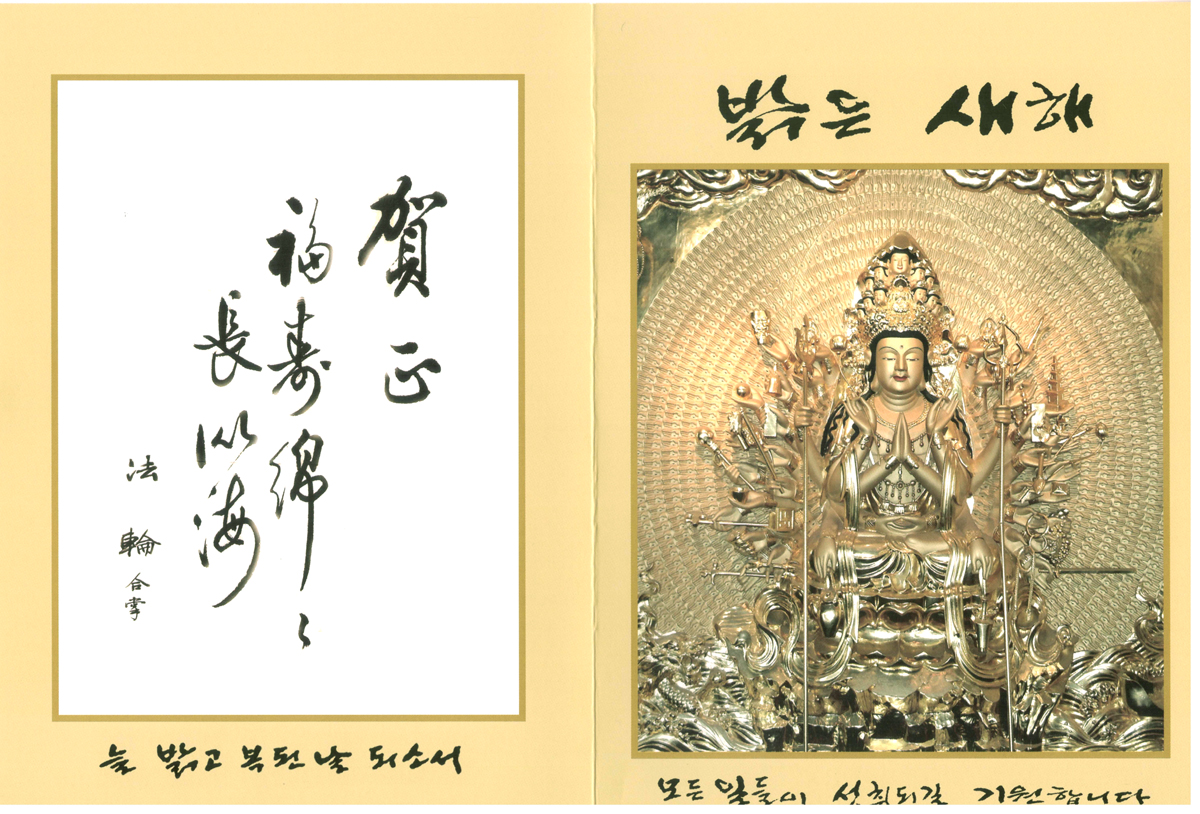 賀正
福壽綿〻
長似海
法輪 合掌
늘 밝고 복된 날 되소서
밝은 새해
모든 일들이 성취되길 기원합니다